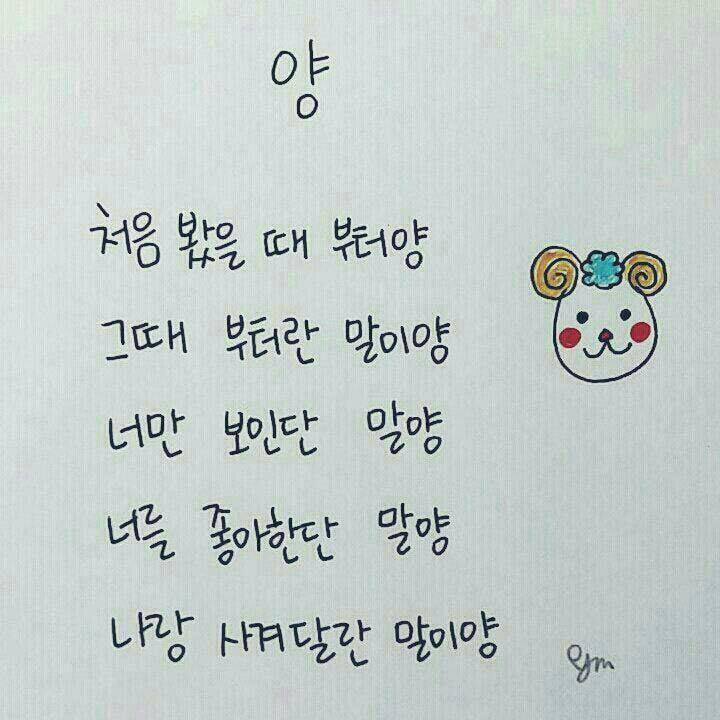 양
처음 봤을 때 부터양
그때 부터란 말이양
너만 보인단 말양
너를 좋아한단 말양
나랑 사겨달란 말이양